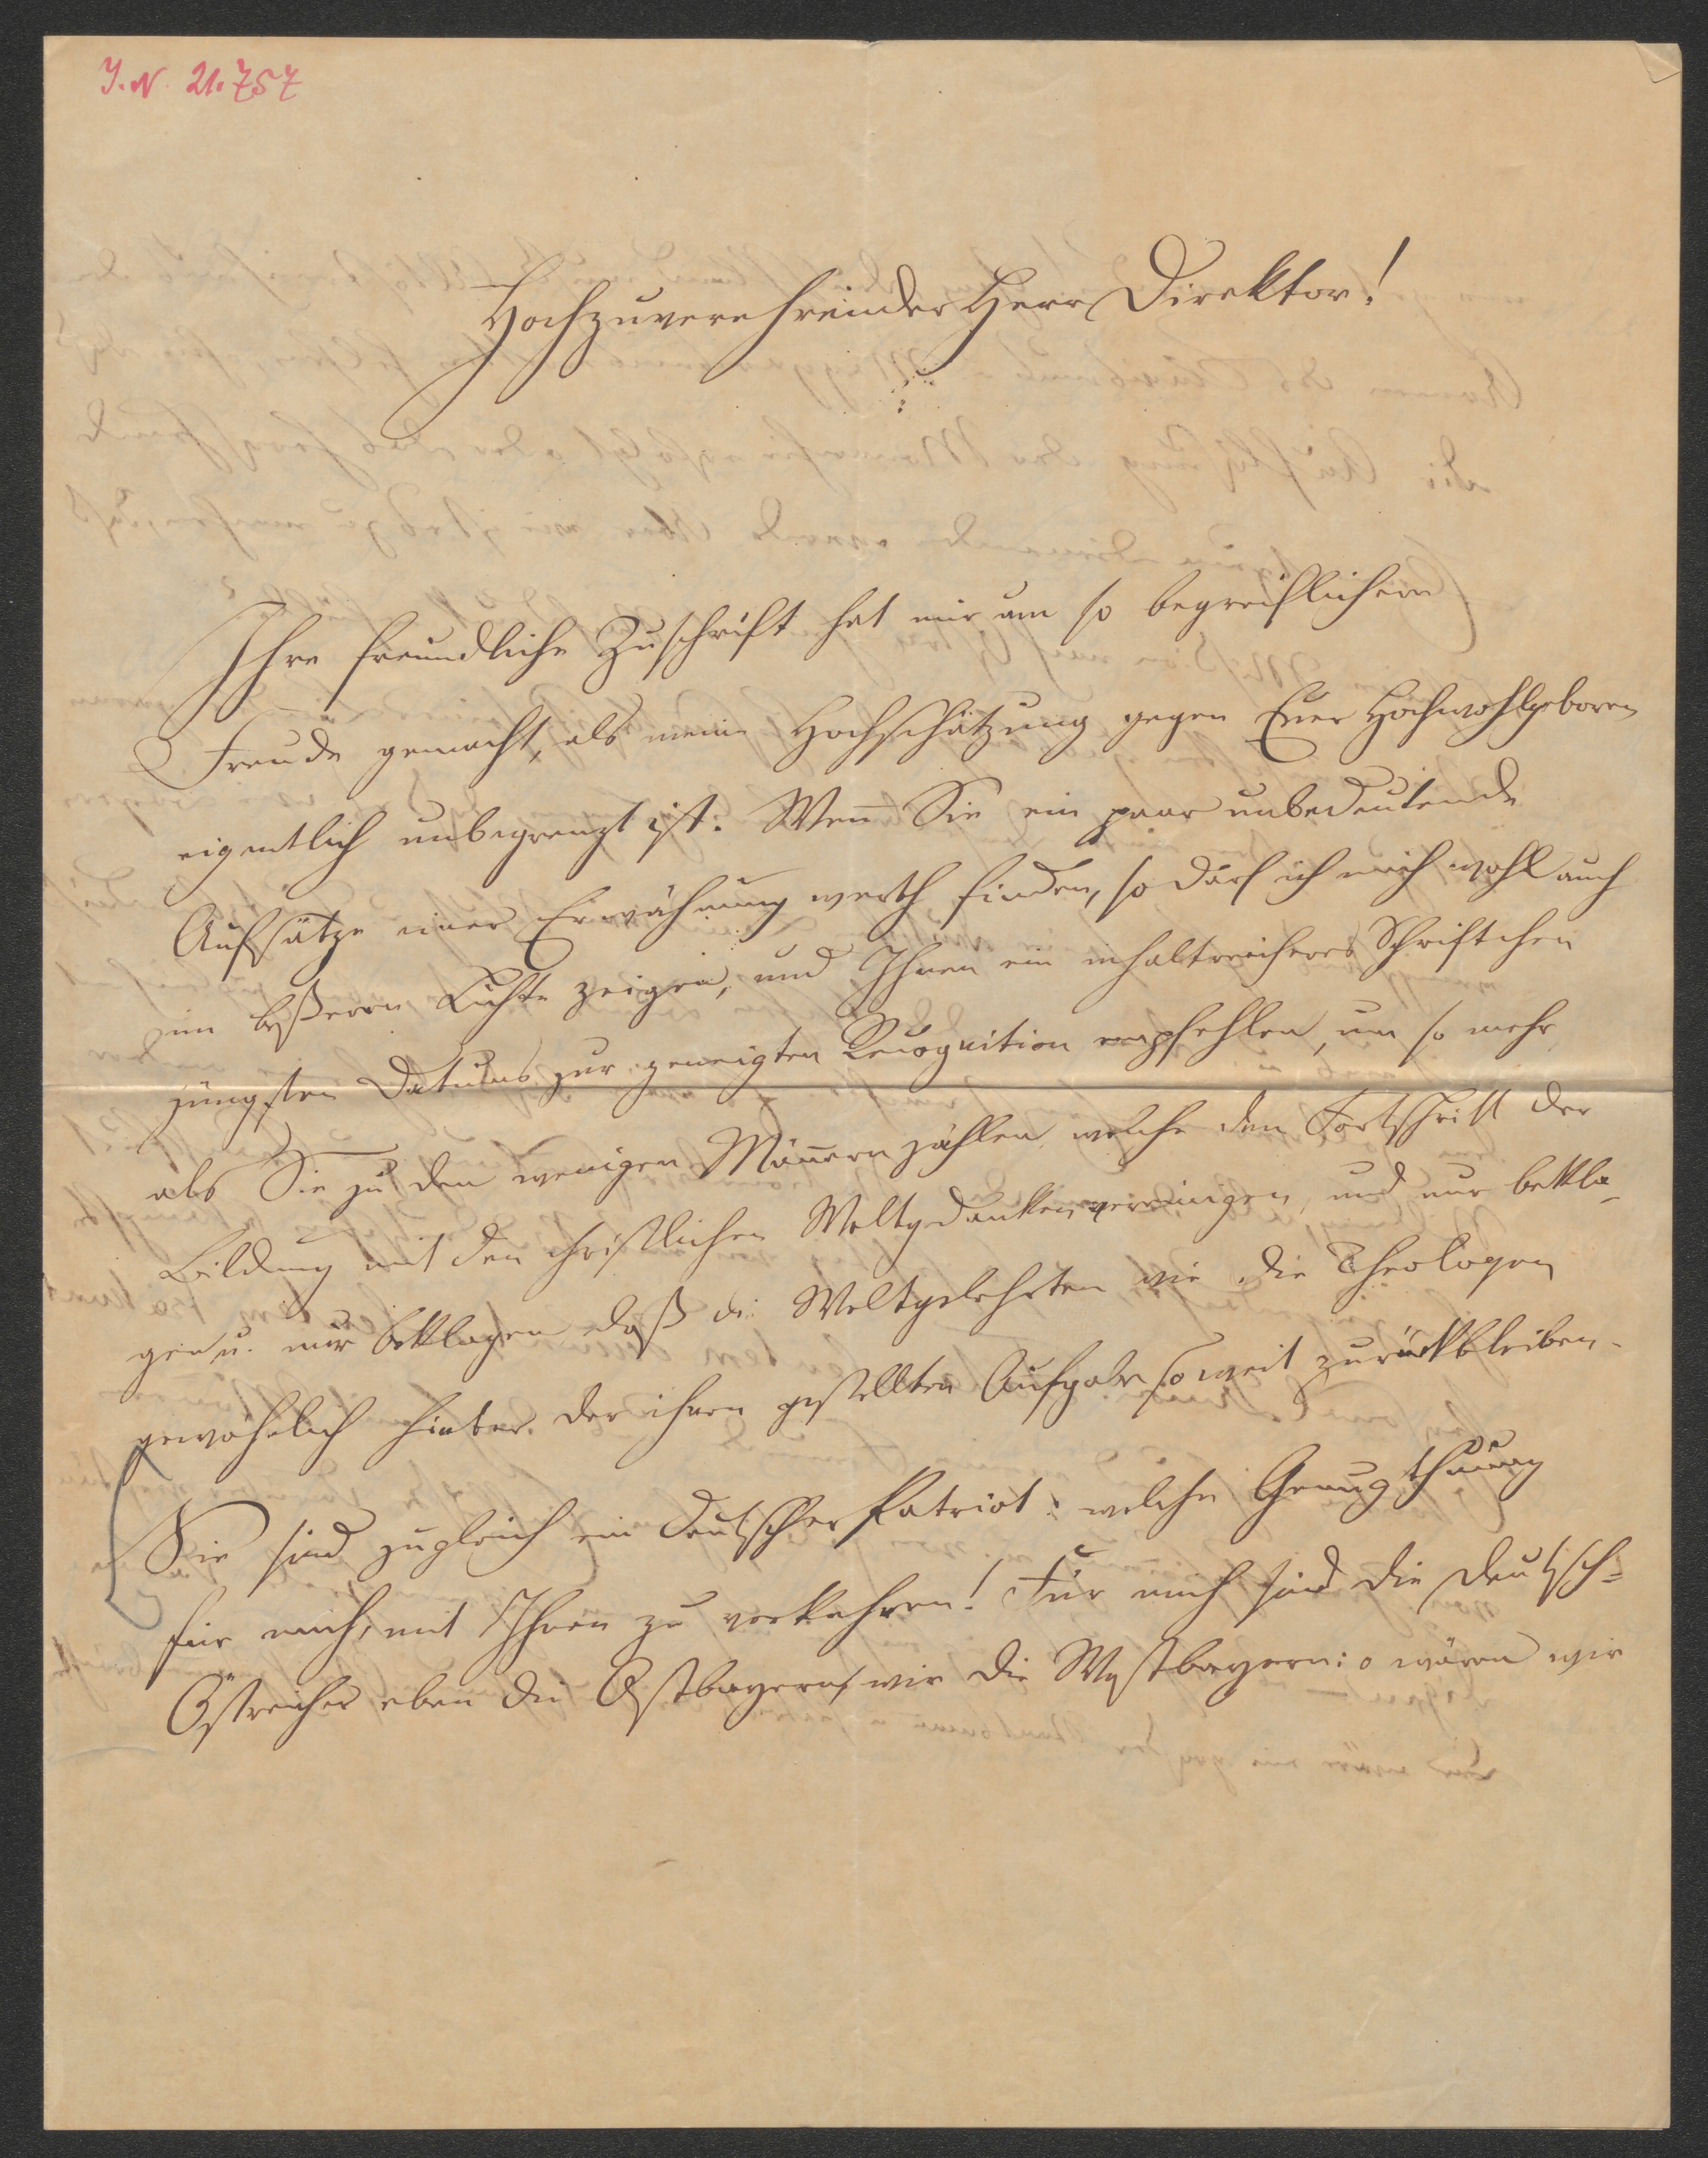 I. N. 21.757
Hochzuverehrender Herr Direktor!
Ihre freundliche Zuschrift hat mir um so begreiflichern
Freude gemacht, als meine Hochschätzung gegen Euer Hochwohlgeboren
eigentlich unbegrenzt ist. Wen̄ Sie ein paar unbedeutende
Aufsätze einer Erwähnung werth finden, so darf ich mich wohl auch
im beßeren Lichte zeigen, und Ihnen ein inhaltreicheres Schriftchen
jüngsten Datums zur geneigten Recognition empfehlen, um so mehr
als Sie zu den wenigen Män̄ern zählen, welche den Fortschritt der
Bildung mit den christlichen Weltgedanken vereinigen, und nur bekla-
gen u. nur beklagen daß die Weltgelehrten wie die Theologen
gewöhnlich hinter der ihnen gestellten Aufgabe so weit zurückbleiben.
Sie sind zugleich ein deutscher Patriot: welche Genugthuung
für mich, mit Ihnen zu verkehren! Für mich sind die Deutsch=
Östreicher eben die Ostbayern, wie die Westbayern: o wären wir